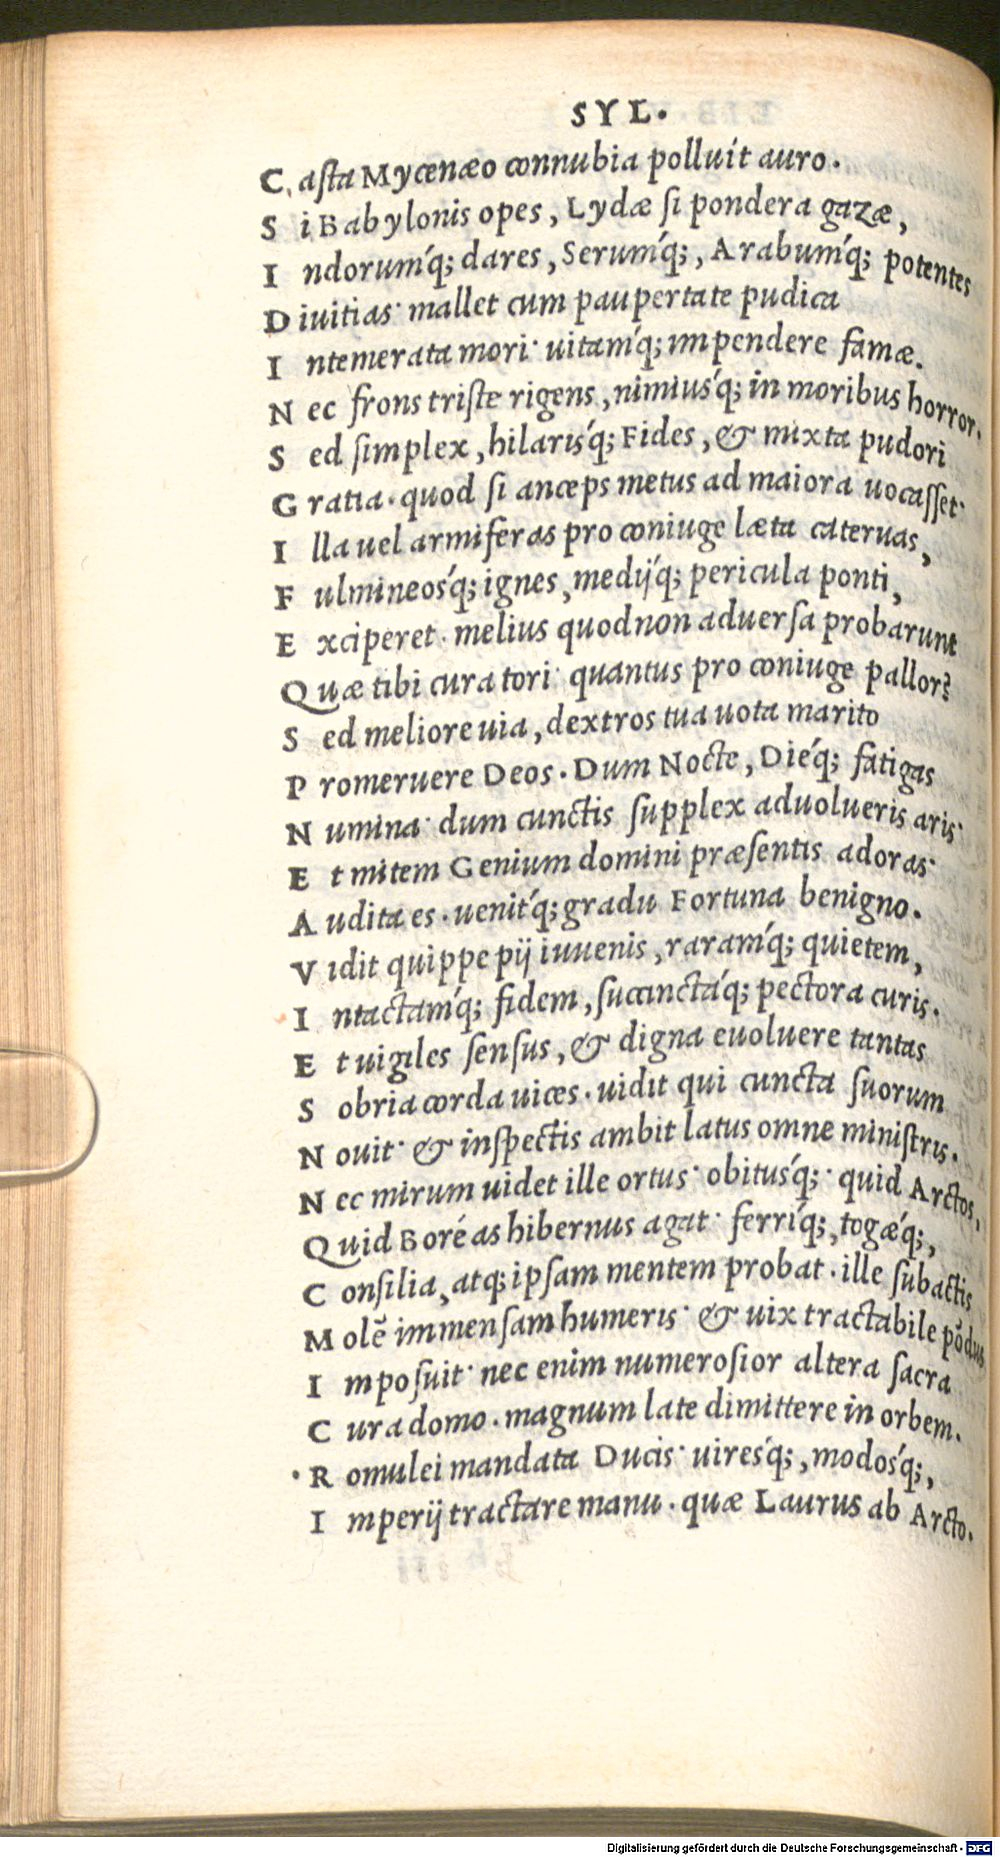 SYL.
C asta Mycenæo connubia polluit auro.
S i Babylonis opes, Lydæ si pondera gazæ,
I ndorumq́; dares, Serumq́;, Arabumq́; potentes
D iuitias· mallet cum paupertate pudica
I ntemerata mori· uitamq́; impendere famæ.
N ec frons triste rigens, nimiusq́; in moribus horror.
S ed simplex, hilarisq́; Fides, & mixta pudori
G ratia· quod si anceps metus ad maiora uocasset·
I lla uel armiferas pro coniuge læta cateruas,
F ulmineosq́; ignes, medijq́; pericula ponti,
E xciperet· melius quod non aduersa probarunt
Q uæ tibi cura tori· quantus pro coniuge pallor?
S ed meliore uia, dextros tua uota marito
P romeruere Deos. Dum Nocte, Dieq́; fatigas
N umina· dum cunctis supplex aduolueris aris·
E t mitem Genium domini præsentis adoras·
A udita es· uenitq́; gradu Fortuna benigno.
V idit quippe pij iuuenis, raramq́; quietem,
I ntactamq́; fidem, succinctaq́; pectora curis.
E t uigiles sensus, & digna euoluere tantas
S obria corda uices· uidit qui cuncta suorum
N ouit· & inspectis ambit latus omne ministris.
N ec mirum uidet ille ortus· obitusq́;· quid Arctos,
Q uid Boréas hibernus agat· ferriq́;, togæq́;,
C onsilia, atq; ipsam mentem probat· ille subactis
M olē immensam humeris· & uix tractabile pōdus
I mposuit· nec enim numerosior altera sacra
C ura domo· magnum late dimittere in orbem.
· R omulei mandata Ducis· uiresq́;, modosq́;,
I mperij tractare manu· quæ Laurus ab Arcto.
Digitalisierung gefördert durch die Deutsche Forschungsgemeinschaft - DFG